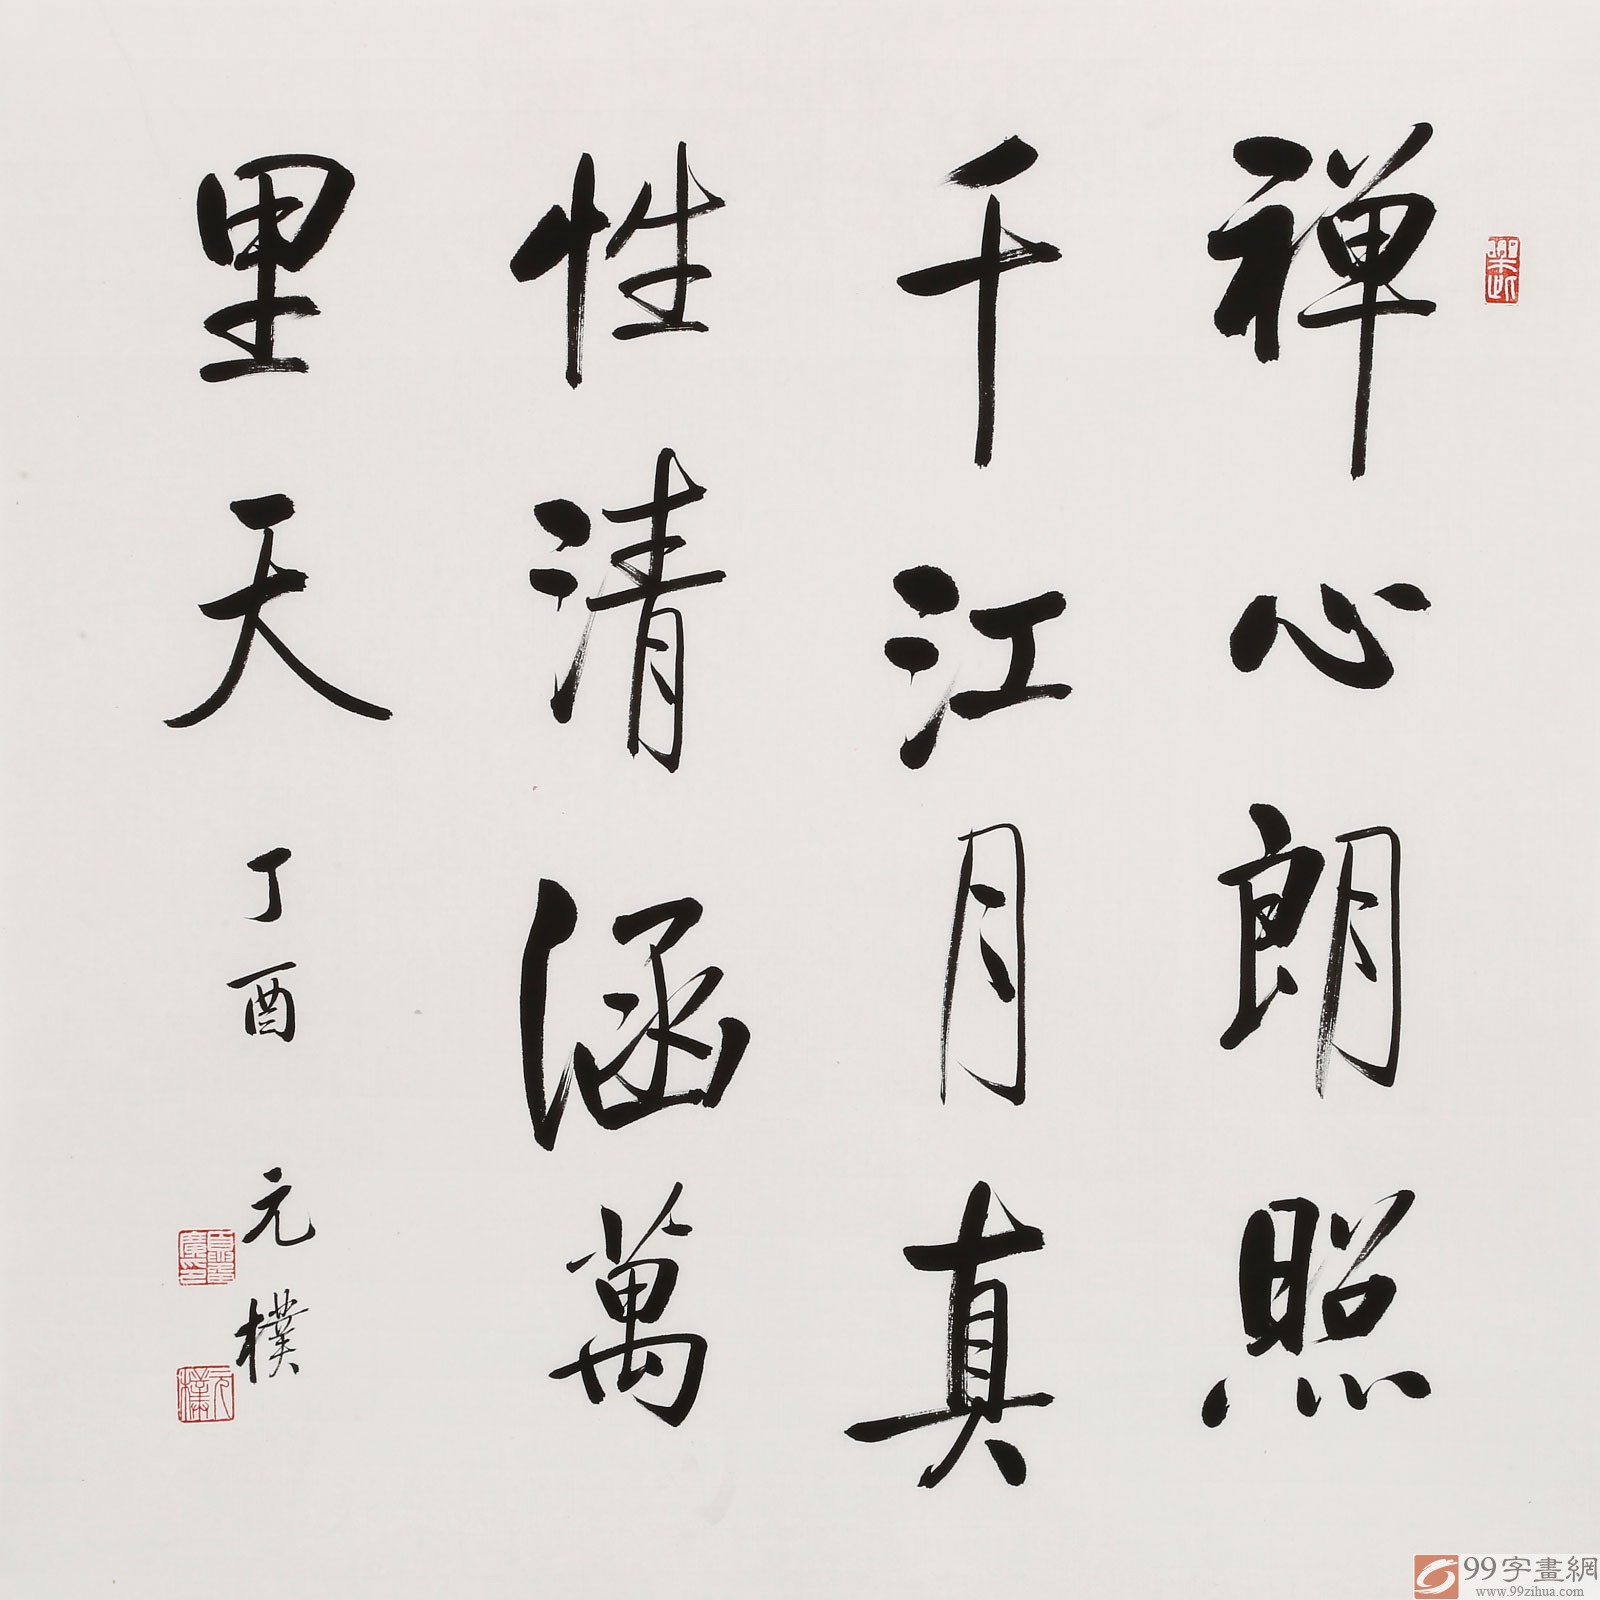 禅心朗照
千江月真
性清涵萬
里天
丁酉 元樸
元樸
99字畫網
www.99zihua.com